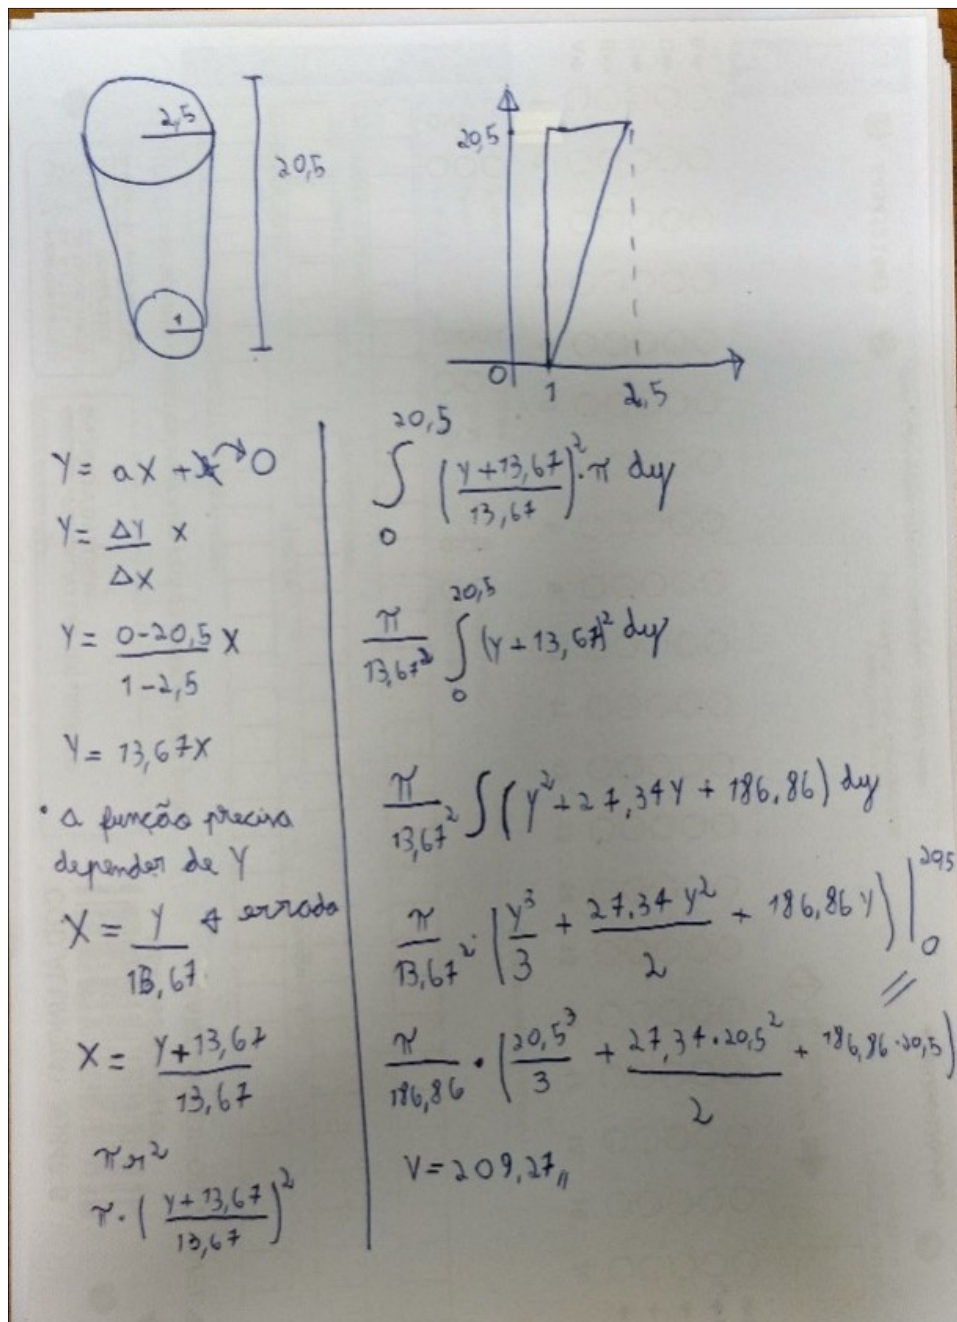 2,5
20,5
1
20,5
0
1
2,5
Y = aX + b → 0
Y = ΔY/ΔX X
Y = (0-20,5)/(1-2,5) X
Y = 13,67X
• a função precisa
depender de Y
X = Y/13,67 errado
X = (Y+13,67)/13,67
πr²
π·((Y+13,67)/13,67)²
∫₀^20,5 ((Y+13,67)/13,67)²·π dy
π/13,67² ∫₀^20,5 (Y+13,67)² dy
π/13,67² ∫(y²+27,34Y+186,86) dy
π/13,67² · (y³/3 + 27,34y²/2 + 186,86Y) |₀^20,5
π/186,86 · (20,5³/3 + 27,34·20,5²/2 + 186,86·20,5)
V = 209,27